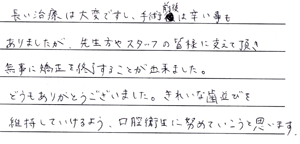 長い治療は大変ですし、手術前後は辛い事も
ありましたが、先生方やスタッフの皆様に支えて頂き
無事に矯正を修了することが出来ました。
どうもありがとうございました。きれいな歯並びを
維持していけるよう、口腔衛生に努めていこうと思います。